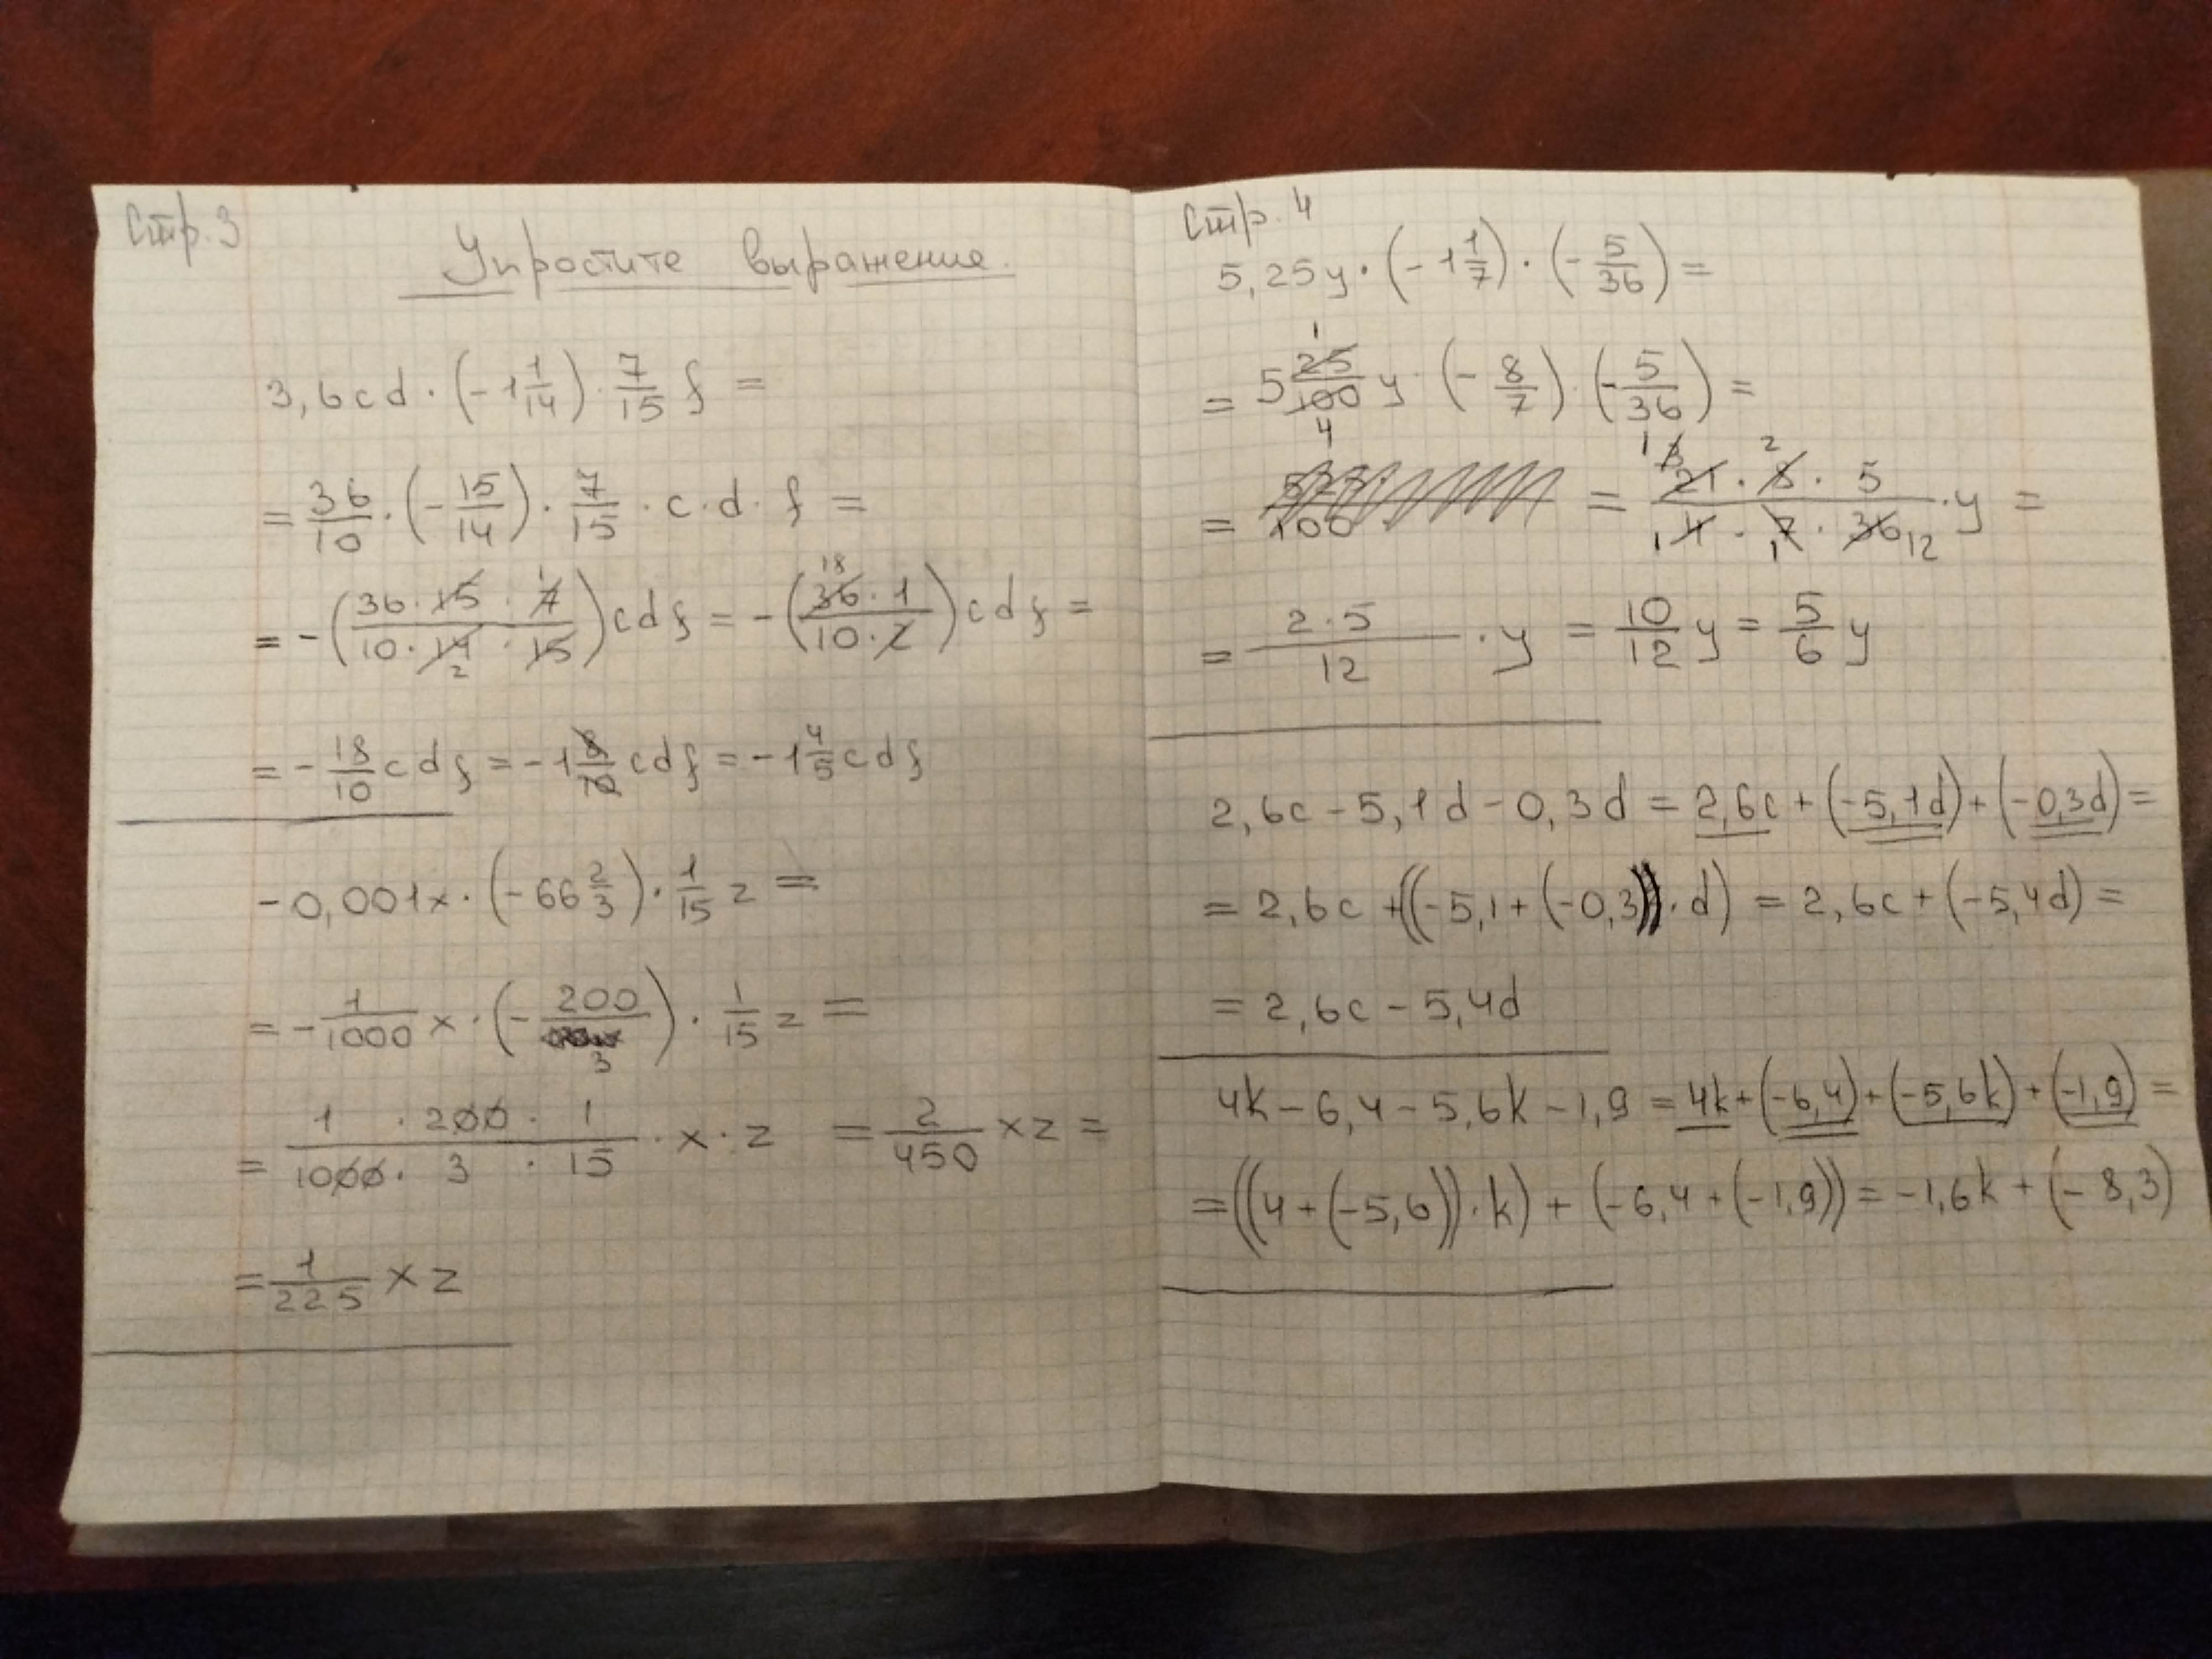 Стр. 3
Упростите выражение.
3,6cd · (-1 1/14) · 7/15 f =
= 36/10 · (-15/14) · 7/15 · c · d · f =
= -(36 · 15 · 7 / 10 · 14 · 15) cdf = -(36 · 1 / 10 · 2) cdf =
= - 18/10 cdf = -1 8/10 cdf = -1 4/5 cdf
-0,001x · (-66 2/3) · 1/15 z =
= - 1/1000 x · (- 200/3) · 1/15 z =
= 1 · 200 · 1 / 1000 · 3 · 15 · x · z = 2/450 xz =
= 1/225 xz
Стр. 4
5,25y · (-1 1/7) · (- 5/36) =
= 5 25/100 y · (- 8/7) · (- 5/36) =
= = 21 · 8 · 5 / 4 · 7 · 36 · y =
= 2 · 5 / 12 · y = 10/12 y = 5/6 y
2,6c - 5,1d - 0,3d = 2,6c + (-5,1d) + (-0,3d) =
= 2,6c + ((-5,1 + (-0,3)) · d) = 2,6c + (-5,4d) =
= 2,6c - 5,4d
4k - 6,4 - 5,6k - 1,9 = 4k + (-6,4) + (-5,6k) + (-1,9) =
= ((4 + (-5,6)) · k) + (-6,4 + (-1,9)) = -1,6k + (-8,3)